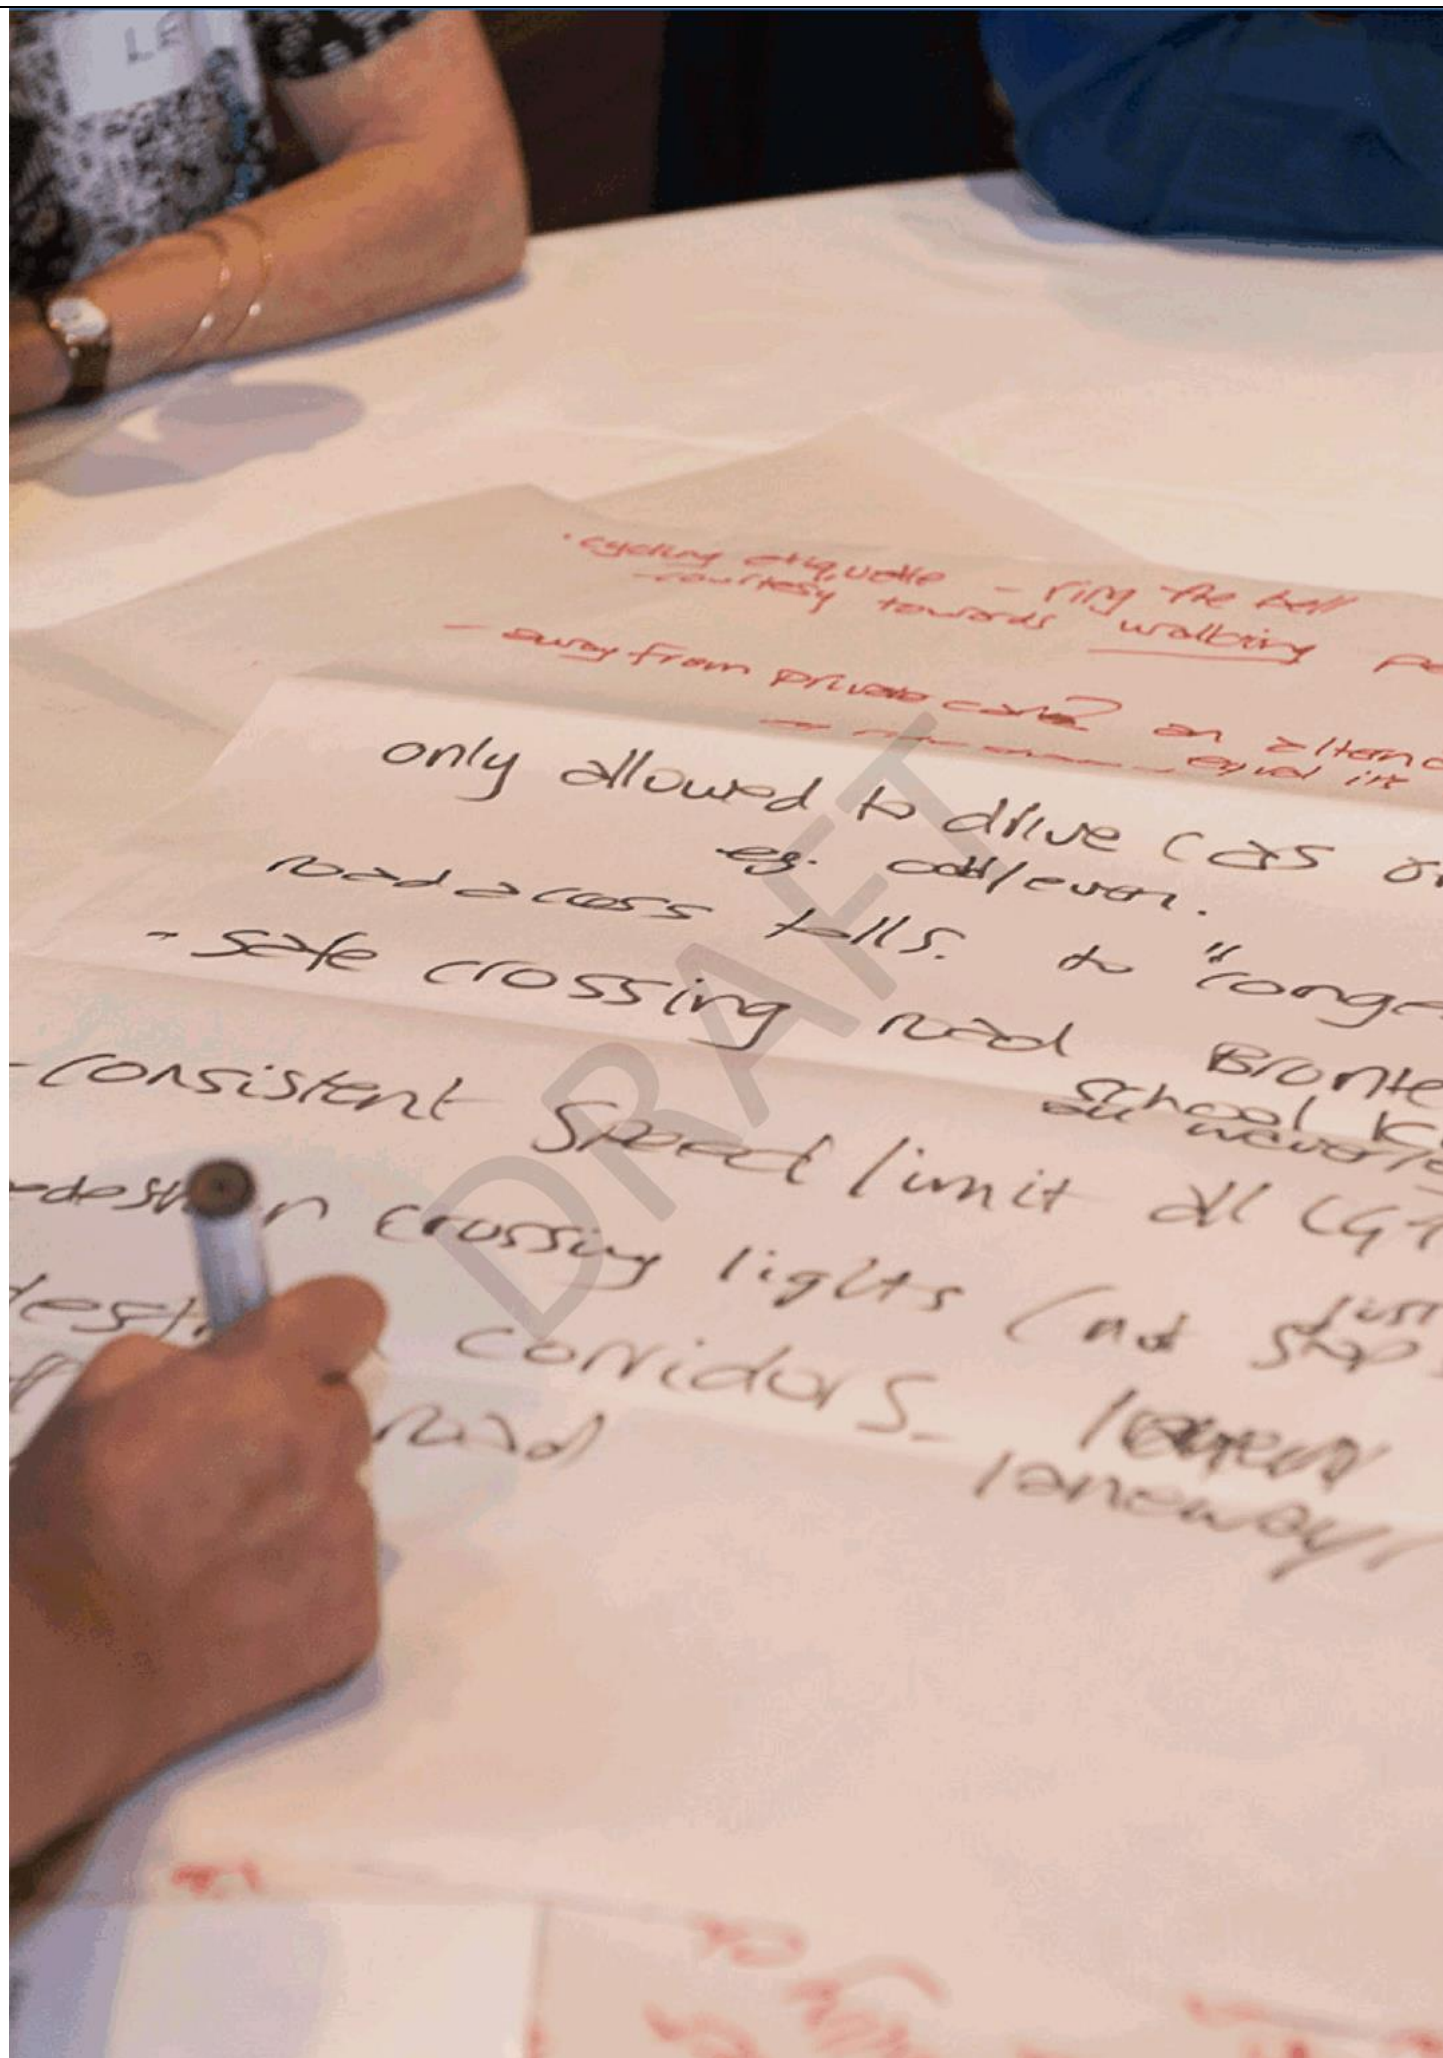 LE
· cycling etiquette - ring the bell
- courtesy towards walking pe
- away from private cars? an alterna
equal in
only allowed to drive cars on
eg. odd/even.
road access tolls. to "conge
- safe crossing road Bronte
school k
all waverle
- consistent speed limit all LGA
edest n crossing lights (not just
stop s
dest corridors -
laneways
road
DRAFT